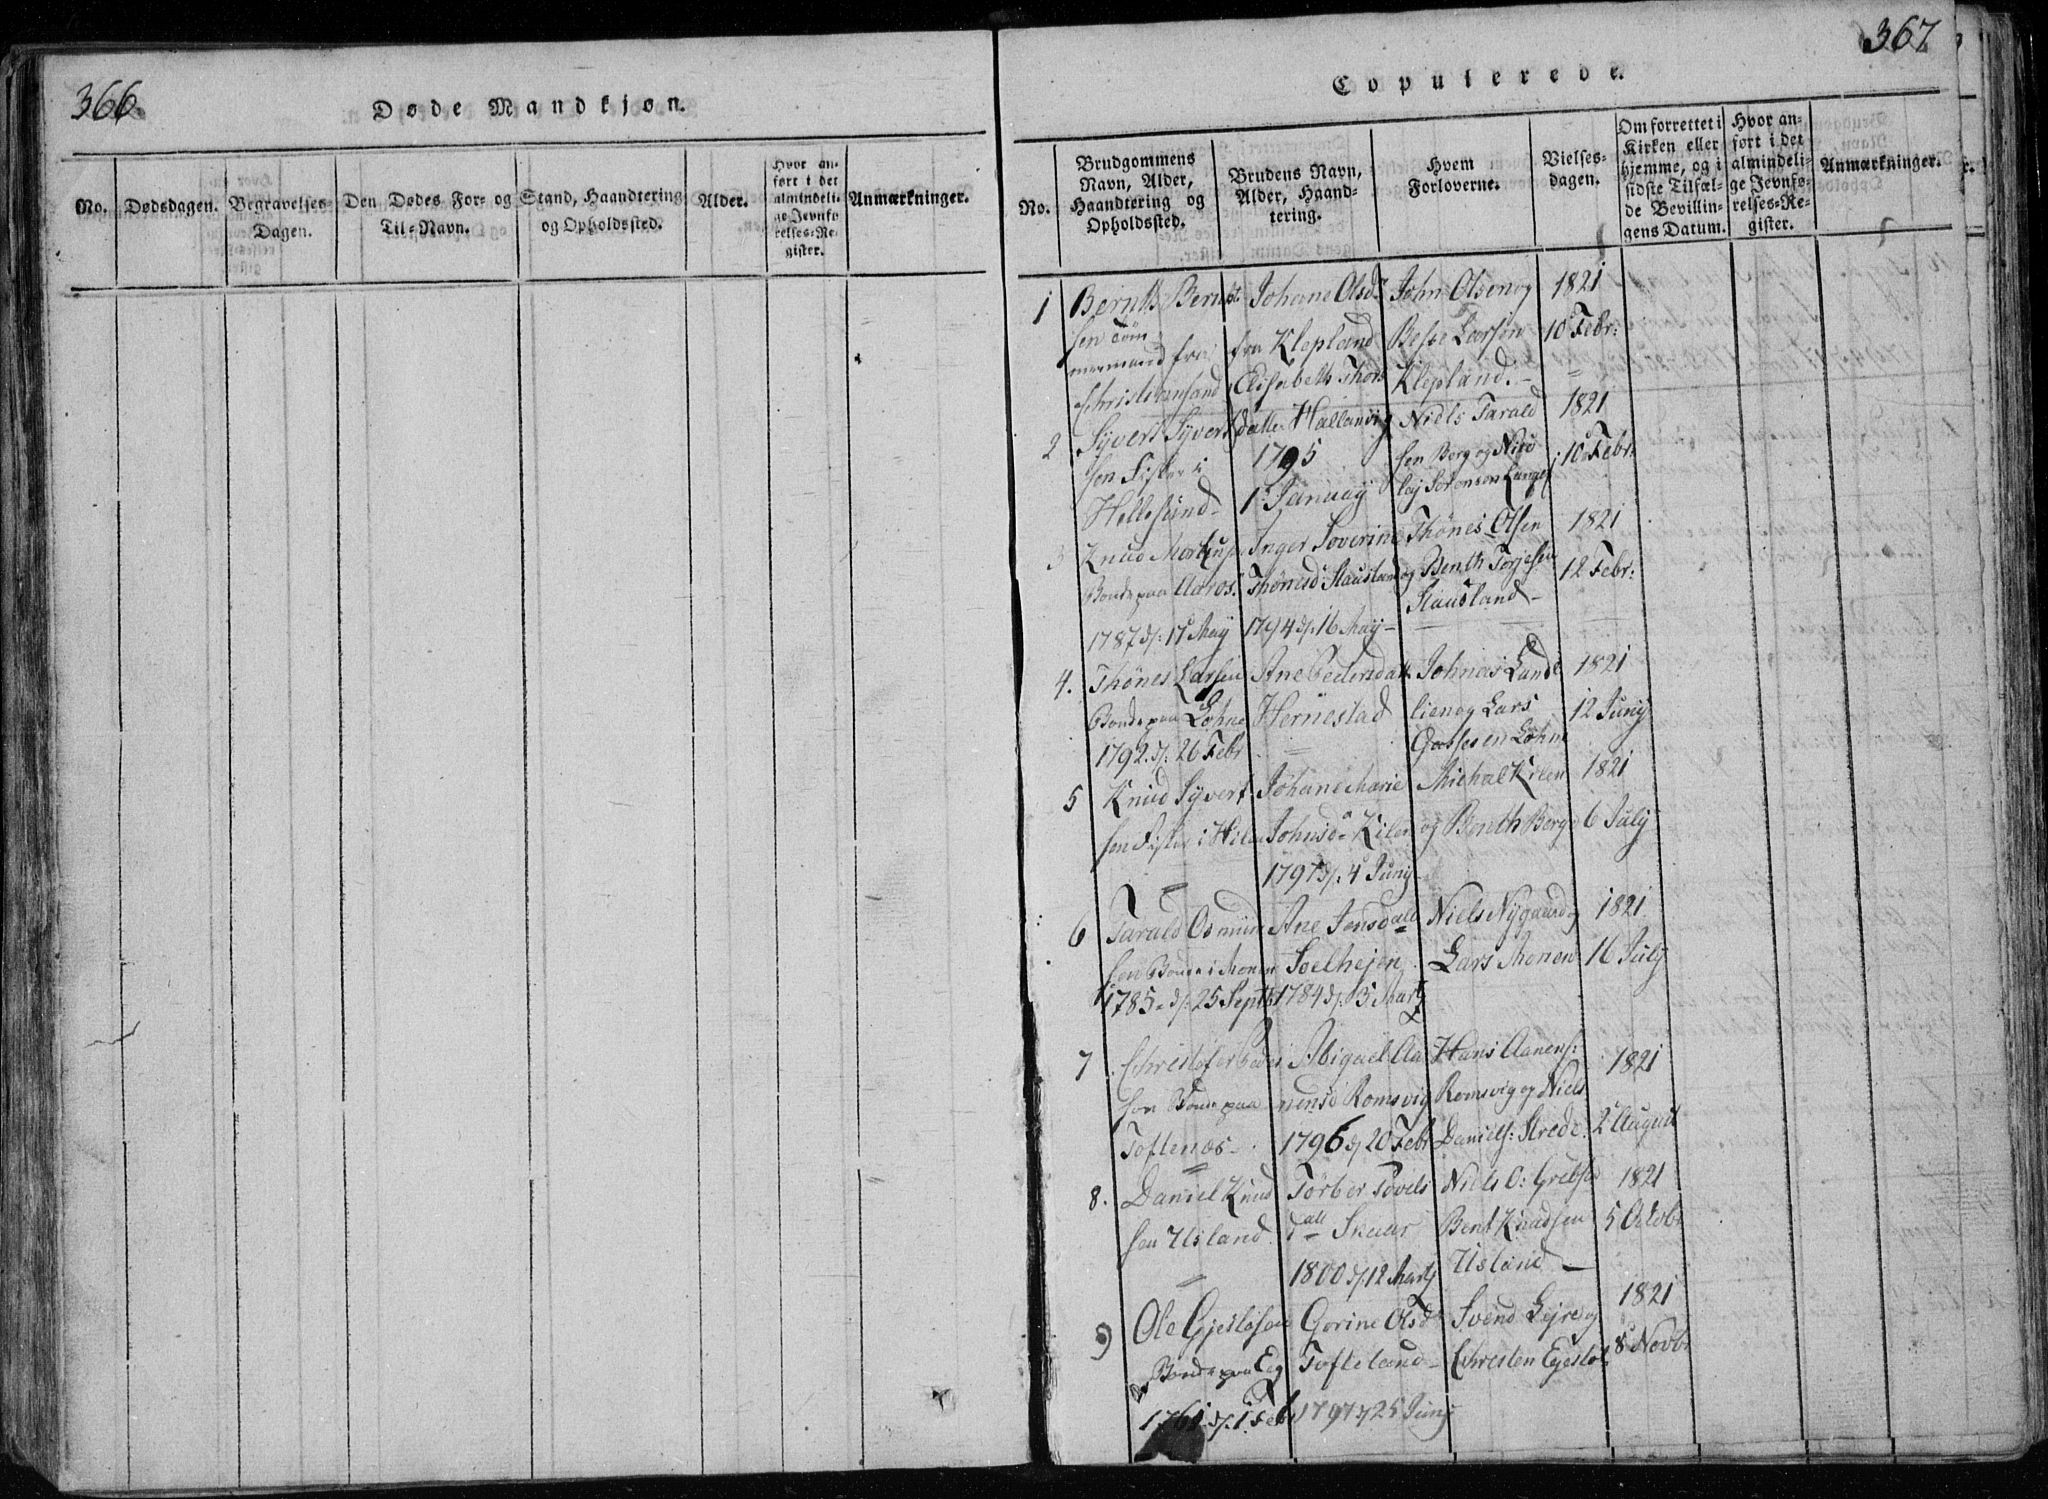 366.
Døde Mandkjøn.
No.
Dødsdagen.
Begravelses-
Dagen.
Den Dødes For- og
Til-Navn.
Stand, Haandtering
og Opholdssted.
Alder.
Hvor an-
ført i det
almindeli-
ge Jevnfø-
relses-Re-
gister.
Anmærkninger.
367
Copulerede.
No.
Brudgommens
Navn, Alder,
Haandtering og
Opholdssted.
Brudens Navn,
Alder, Haand-
tering.
Hvem
Forloverne.
Vielses-
dagen.
Om forrettet i
Kirken eller
hjemme, og i
sidste Tilfæl-
de Bevillin-
gens Datum.
Hvor an-
ført i det
almindeli-
ge Jevnfø-
relses-Re-
gister.
Anmærkninger.
1
Bernth Bernt
sen Töm
mermand fra
Christiansand
Johane Olsd
fra Klepland
John Olsen og
Besse Larsen
Klepland.
1821
10 Febr:
2
Syvert Syvert
sen Fisker i
Hellesund
Elisabeth Thors
datter Hallandvig
1795
1 January
Niels Tarald
sen Berg og
1821
10 Febr:
3
Knud
Bonde paa Aaros
1787 d. 17 May
Inger Severine
Thönesd Stausland
1794 d. 16 May
Thönes Olsen
og Benth Torjesen
Stausland
1821
12 Febr:
4.
Thönes Larsen
Bonde paa Löhne
1792. d. 26 Febr
Ane Pedersdatt.
Hernestad
Johnas Lande
lien og Lars
Löhne
1821
12 Juny
5
Knud Syvert
sen Fisker i Kilen
Johane Marie
Johnsd Kilen
1797 d. 4 Juny
Michal Kilen
og Benth Berge
1821
6 July
6
Tarald Osmun
sen Bonde i Monen
1785 d. 25 Septb
Ane Jensdatt
Soelhejen
1784 d. 3 Marty
Niels Nygaard og
Lars Monen
1821
16 July
7
Christofer
sen Bonde paa
Toftenæs
Abigael Aa
nensd Romsvig
1796 d 20 Febr
Hans Aanens:
Romsvig og Niels
Daniels: Strede.
1821
2 August
8.
Daniel Knud
sen Usland.
Törber Tovels
datt Skaar
1800 d. 12 Marty
Niels O: Grebstad
Bent Knudsen
Usland
1821
5 Octobr
9
Ole Gjeslösen
Bonde paa Eeg
1761 d. 1 Feb
Gorine Olsd
Tofteland
1797 d 25 Juny
Svend Lejre og
Christen Egestöl
1821
8 Novbr